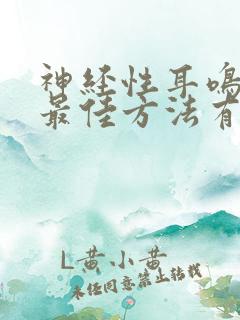 神经性耳鸣
最佳方法有
L黄小黄
未经同意禁止转载